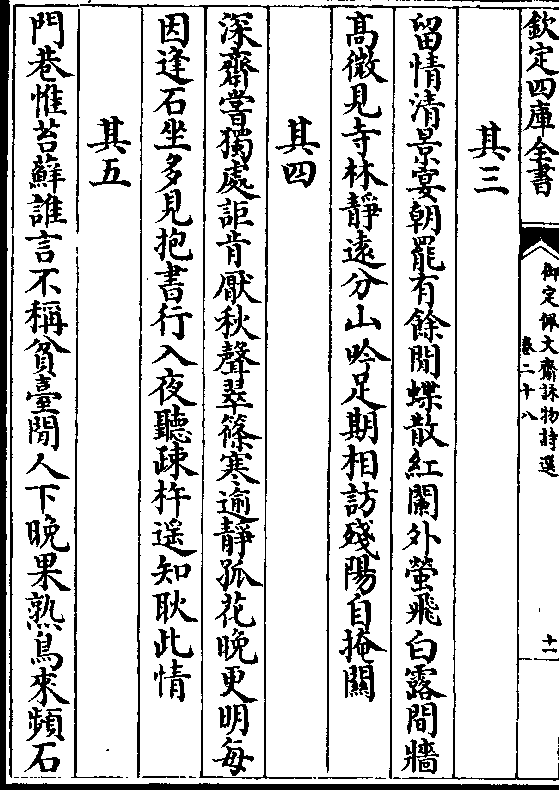 欽定四庫全書
御定佩文齋詠物詩選
卷二十八
十一
其三
留情清景宴朝罷有餘閒蝶散紅闌外螢飛白露間牆
高微見寺林靜遠分山吟足期相訪殘陽自掩關
其四
深齋嘗獨處詎肯厭秋聲翠篠寒逾靜孤花晚更明每
因逢石坐多見抱書行入夜聽疎杵遥知耿此情
其五
門巷惟苔蘚誰言不稱貧臺閒人下晚果熟鳥來頻石